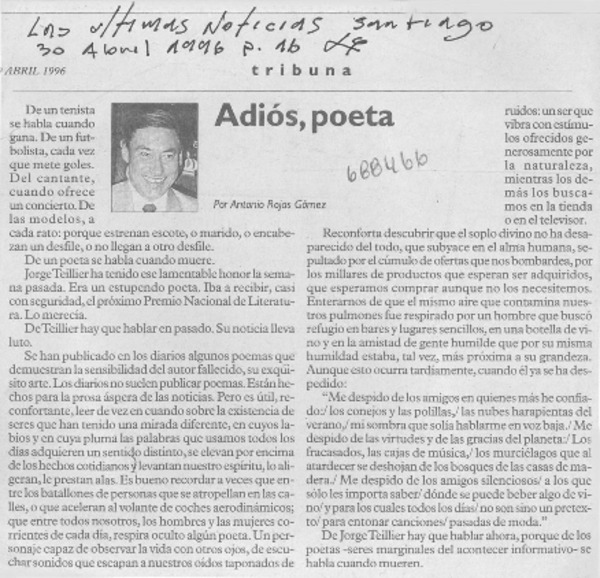 Las Ultimas Noticias Santiago
30 Abril 1996 p. 16
ABRIL 1996
tribuna
Adiós, poeta
688466
Por Antonio Rojas Gómez
De un tenista
se habla cuando
gana. De un fut-
bolista, cada vez
que mete goles.
Del cantante,
cuando ofrece
un concierto. De
las modelos, a
cada rato: porque estrenan escote, o marido, o encabe-
zan un desfile, o no llegan a otro desfile.
De un poeta se habla cuando muere.
Jorge Teillier ha tenido ese lamentable honor la sema-
na pasada. Era un estupendo poeta. Iba a recibir, casi
con seguridad, el próximo Premio Nacional de Literatu-
ra. Lo merecía.
De Teillier hay que hablar en pasado. Su noticia lleva
luto.
Se han publicado en los diarios algunos poemas que
demuestran la sensibilidad del autor fallecido, su exqui-
sito arte. Los diarios no suelen publicar poemas. Están he-
chos para la prosa áspera de las noticias. Pero es útil, re-
confortante, leer de vez en cuando sobre la existencia de
seres que han tenido una mirada diferente, en cuyos la-
bios y en cuya pluma las palabras que usamos todos los
días adquieren un sentido distinto, se elevan por encima
de los hechos cotidianos y levantan nuestro espíritu, lo ali-
geran, le prestan alas. Es bueno recordar a veces que en-
tre los batallones de personas que se atropellan en las ca-
lles, o que aceleran al volante de coches aerodinámicos;
que entre todos nosotros, los hombres y las mujeres co-
rrientes de cada día, respira oculto algún poeta. Un per-
sonaje capaz de observar la vida con otros ojos, de escu-
char sonidos que escapan a nuestros oídos taponados de
ruidos: un ser que
vibra con estímu-
los ofrecidos ge-
nerosamente por
la naturaleza,
mientras los de-
más los busca-
mos en la tienda
o en el televisor.
Reconforta descubrir que el soplo divino no ha des-
aparecido del todo, que subyace en el alma humana, se-
pultado por el cúmulo de ofertas que nos bombardea, por
los millares de productos que esperan ser adquiridos,
que esperamos comprar aunque no los necesitemos.
Enterarnos de que el mismo aire que contamina nues-
tros pulmones fue respirado por un hombre que buscó
refugio en bares y lugares sencillos, en una botella de vi-
no y en la amistad de gente humilde que por su misma
humildad estaba, tal vez, más próxima a su grandeza.
Aunque esto ocurra tardíamente, cuando él ya se ha des-
pedido:
"Me despido de los amigos en quienes más he confia-
do:/ los conejos y las polillas,/ las nubes harapientas del
verano,/ mi sombra que solía hablarme en voz baja./ Me
despido de las virtudes y de las gracias del planeta:/ Los
fracasados, las cajas de música,/ los murciélagos que al
atardecer se deshojan de los bosques de las casas de ma-
dera./ Me despido de los amigos silenciosos/ a los que
sólo les importa saber/ dónde se puede beber algo de vi-
no/ y para los cuales todos los días/ no son sino un pretex-
to/ para entonar canciones/ pasadas de moda."
De Jorge Teillier hay que hablar ahora, porque de los
poetas -seres marginales del acontecer informativo- se
habla cuando mueren.